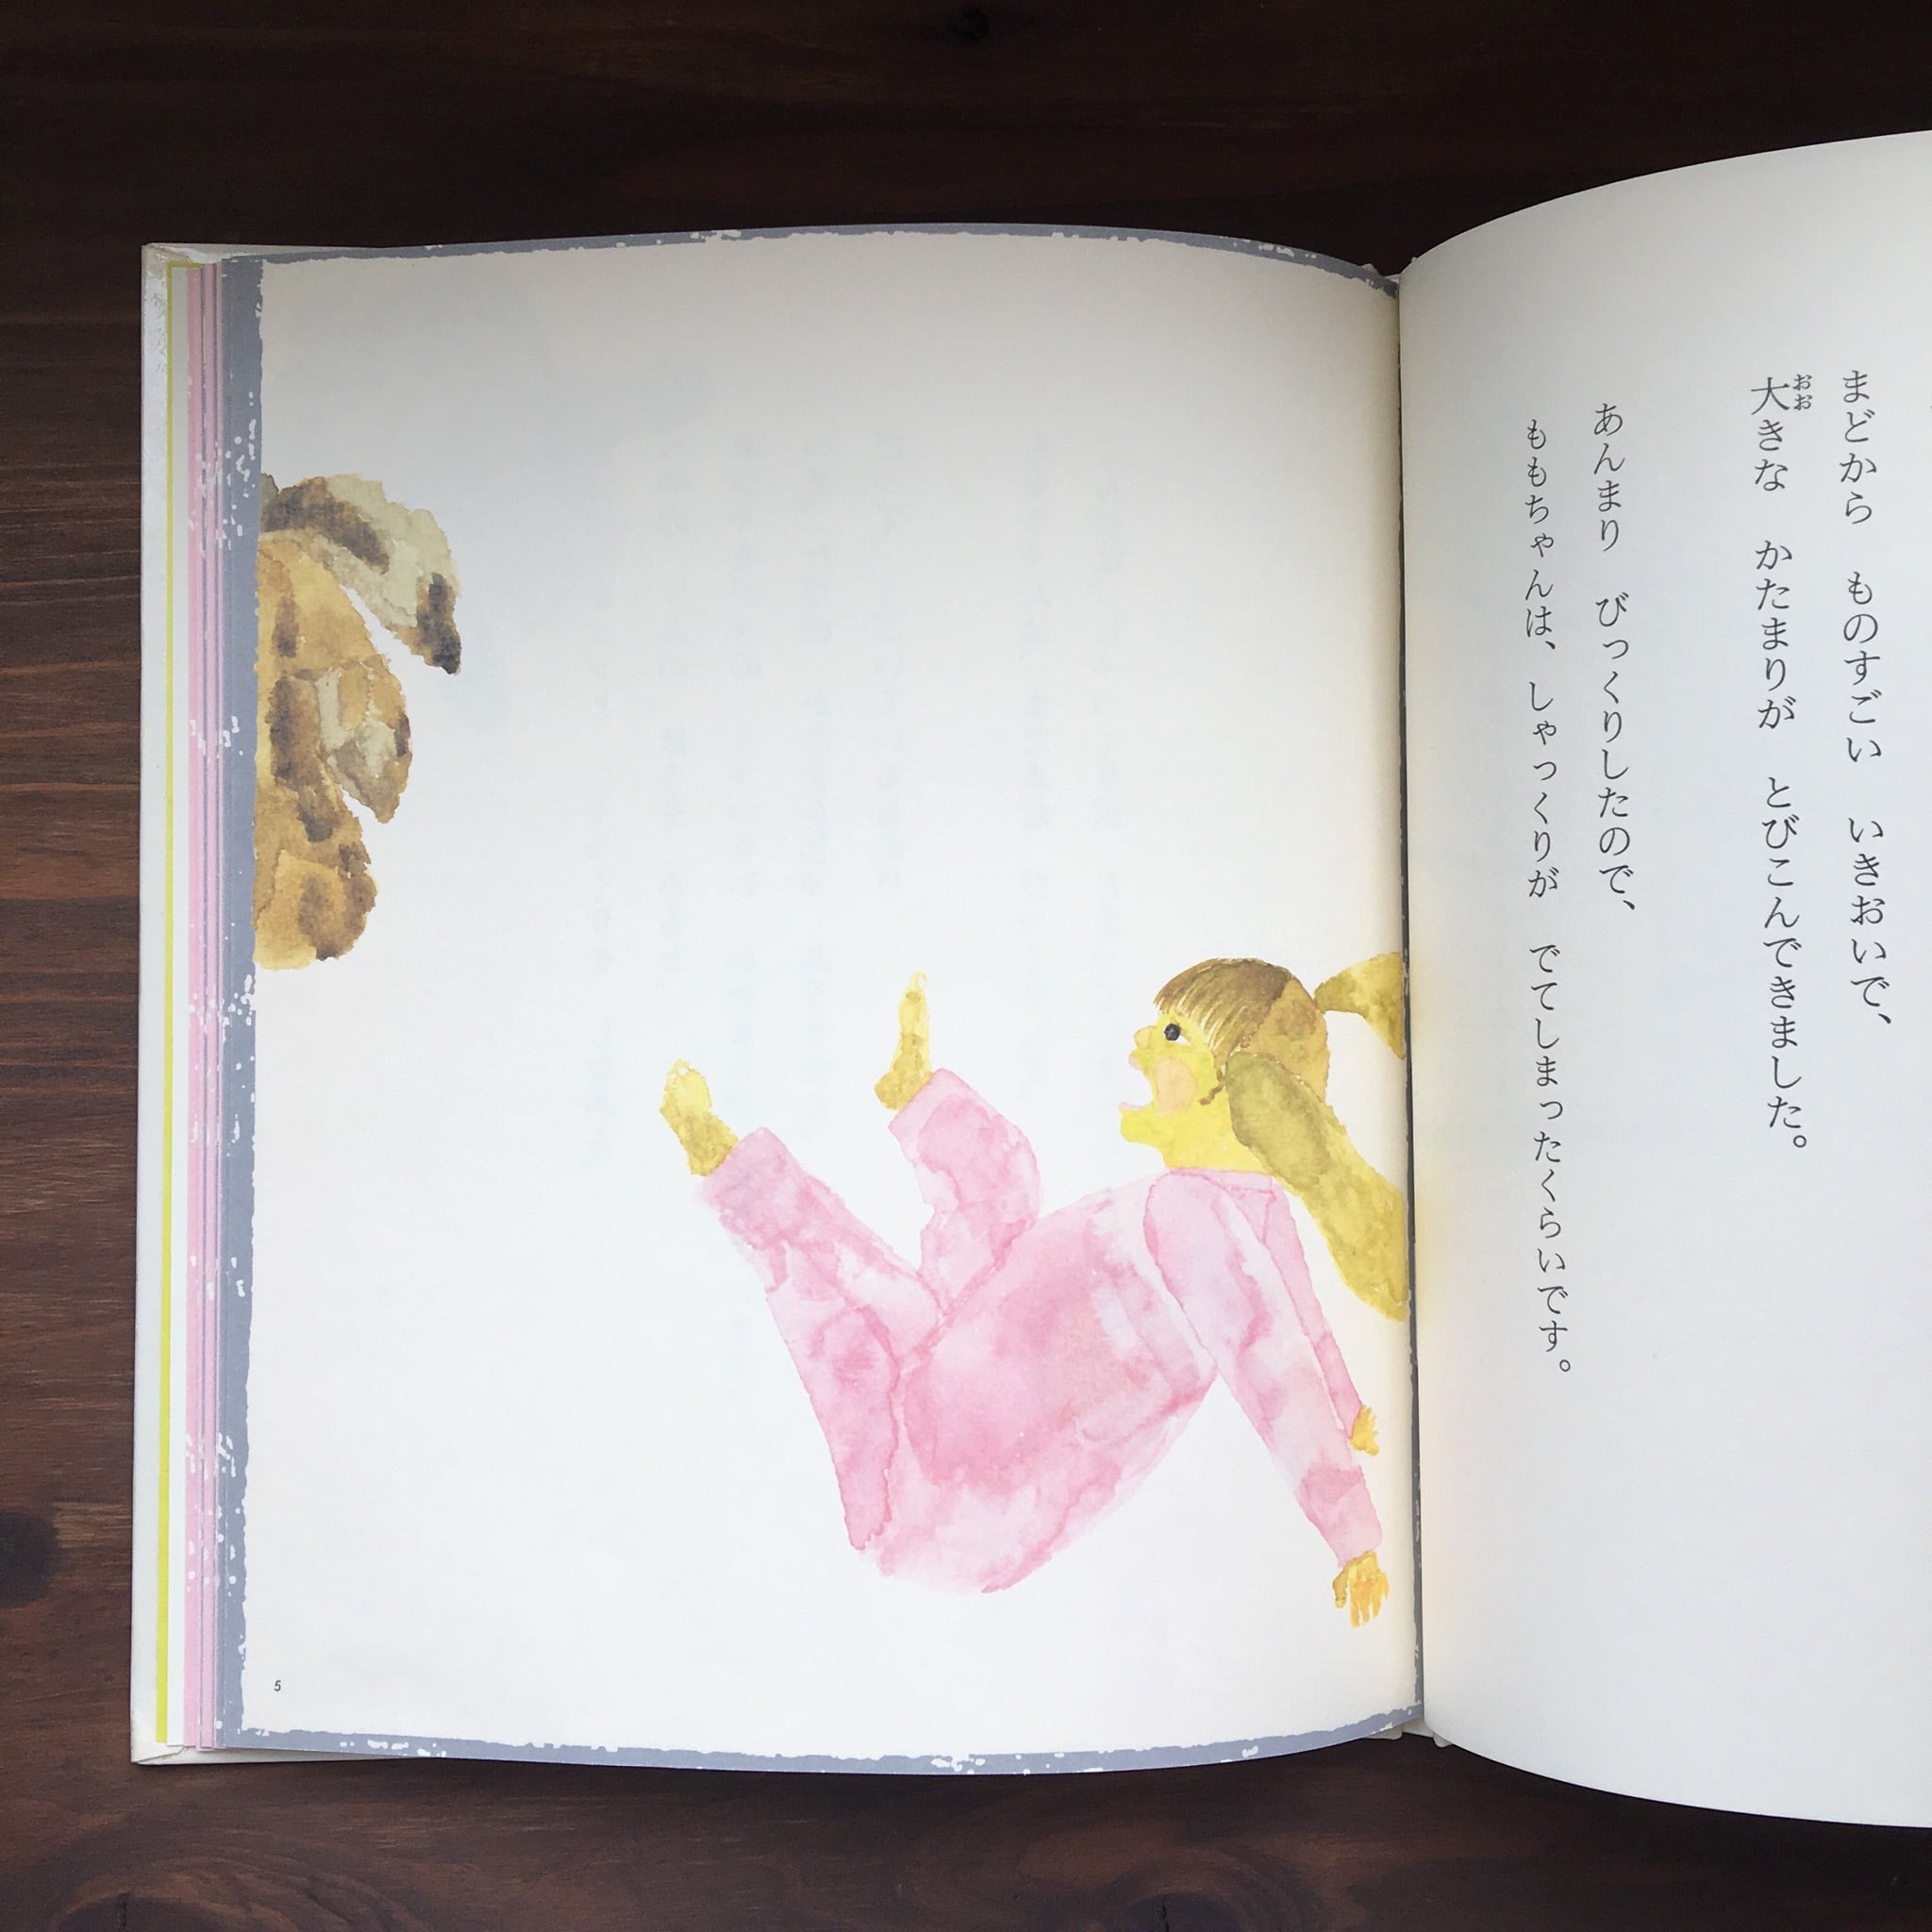 まどから　ものすごい　いきおいで、
大きな　かたまりが　とびこんできました。
おお
あんまり　びっくりしたので、
ももちゃんは、しゃっくりが　でてしまったくらいです。
5